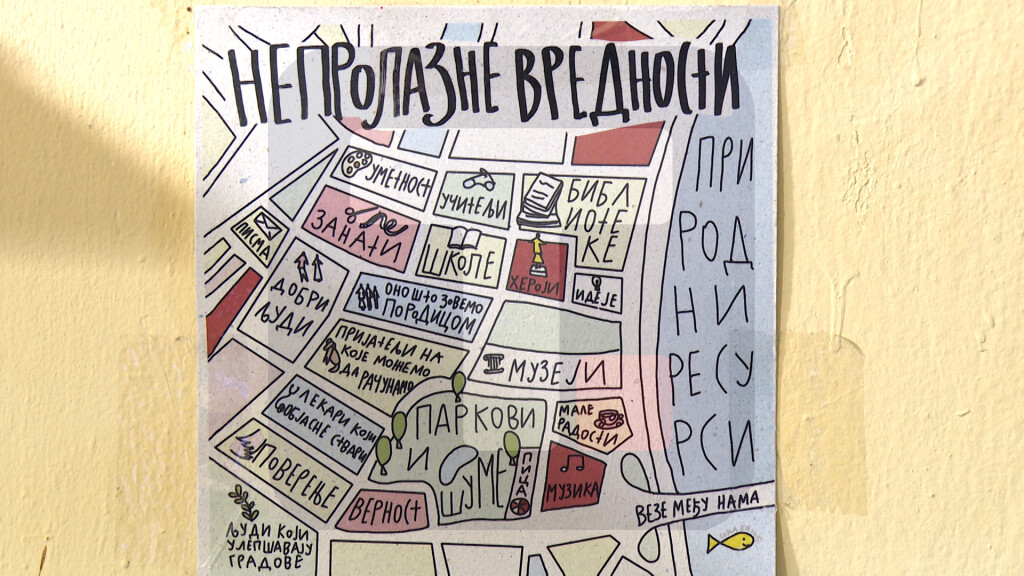 НЕПРОЛАЗНЕ ВРЕДНОСТИ
УМЕТНОСТ
УЧИТЕЉИ
БИБЛ.
ИОТЕ
КЕ
ПРИ
РОД
НИ
РЕСУ
РСИ
ЗАНАТИ
ШКОЛЕ
ХЕРОЈИ
ИДЕЈЕ
ПИСМА
ДОБРИ
ЉУДИ
ОНО ШТО ЗОВЕМО
ПОРОДИЦОМ
ПРИЈАТЕЉИ НА
КОЈЕ МОЖЕМО
ДА РАЧУНАМО
МУЗЕЈИ
У ЛЕКАРИ КОЈИ
ОБЈАСНЕ СТВАРИ
ПАРКОВИ
И
ШУМЕ
МАЛЕ
РАДОСТИ
ПИЦА
МУЗИКА
ПОВЕРЕЊЕ
ВЕРНОСТ
ВЕЗЕ МЕЂУ НАМА
ЉУДИ КОЈИ
УЛЕПШАВАЈУ
ГРАДОВЕ